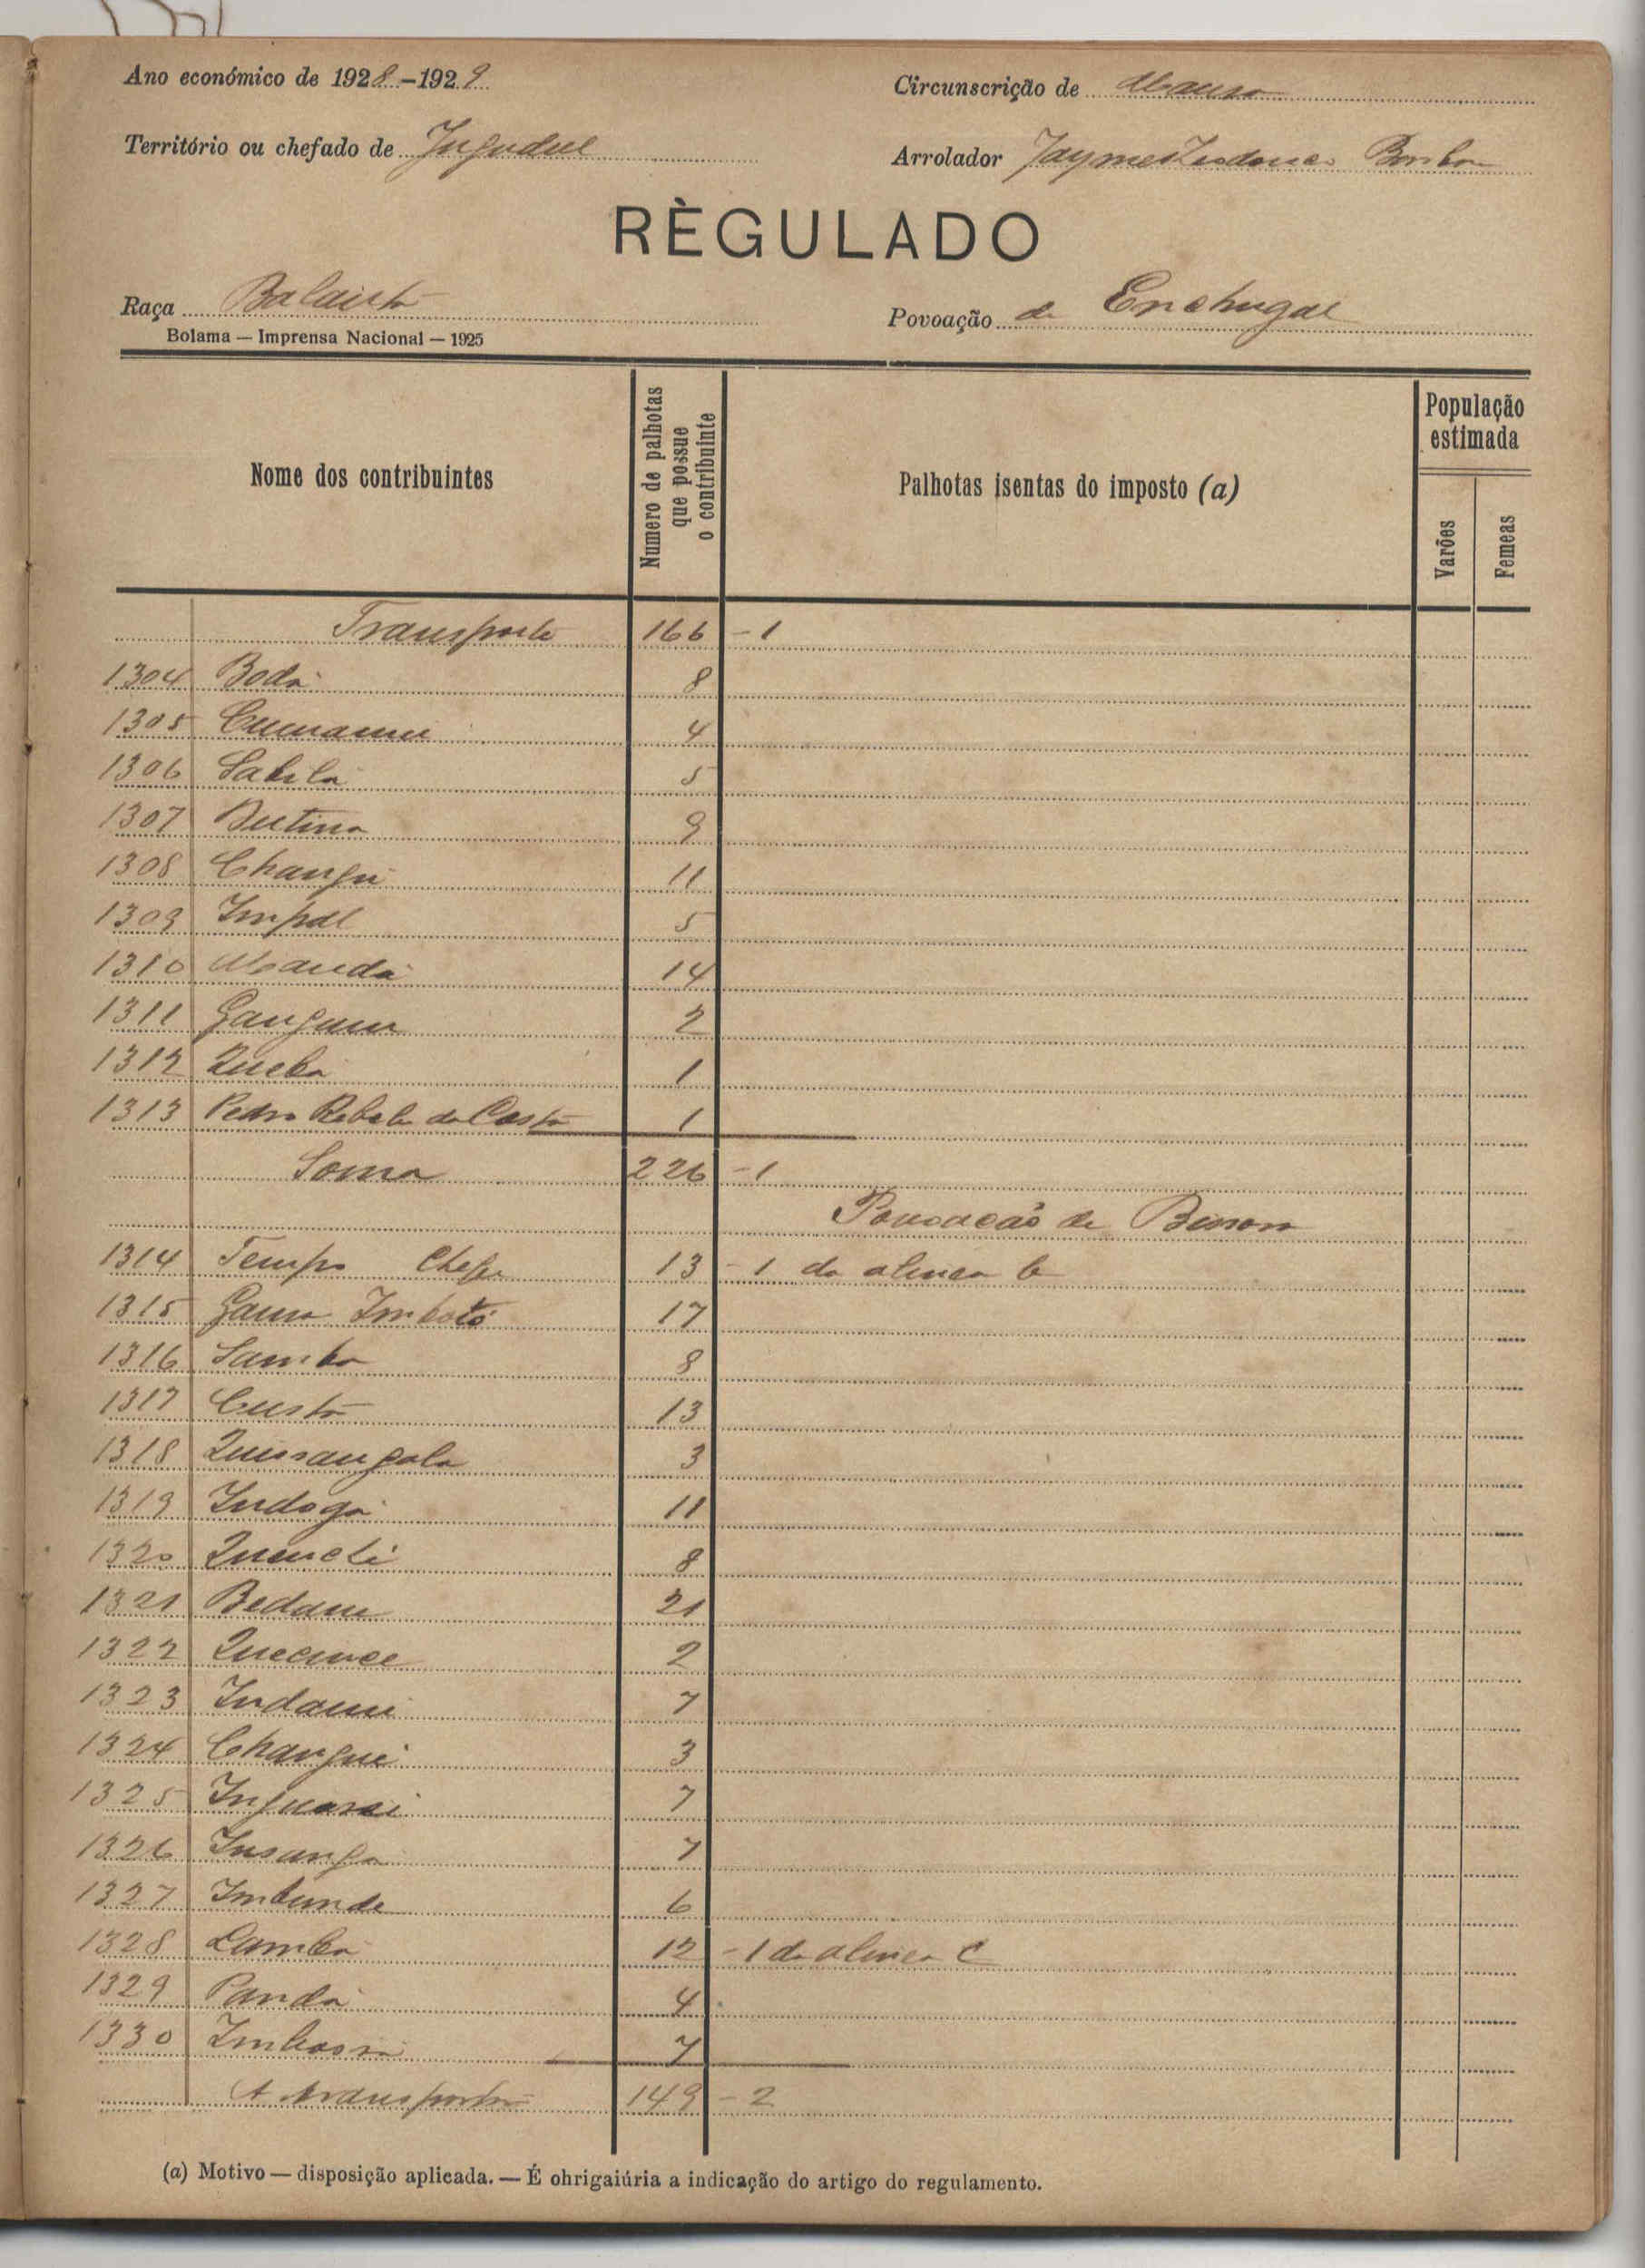 Ano económico de 1928-1929
Circunscrição de Mansoa
Território ou chefado de Jugudul
Arrolador Jayme
RÈGULADO
Raça Balanta
Povoação de Enchugal
Bolama — Imprensa Nacional — 1925
Nome dos contribuintes
Numero de palhotas que possue o contribuinte
Palhotas isentas do imposto (a)
População estimada
Varões
Femeas
Transporte 166 - 1
1304 Bodá 8
1305 4
1306 5
1307 Butina 9
1308 Changui 11
1309 Impal 5
1310 Mandá 14
1311 Gangam 2
1312 Queba 1
1313 Pedro Rebelo da Costa 1
Soma 226 - 1
Povoação de
1314 Tempo Chefe 13 - 1 da alinea b
1315 Imbotó 17
1316 Samba 8
1317 13
1318 Quissangala 3
1319 Indogá 11
1320 8
1321 Bedam 21
1322 2
1323 Indami 7
1324 Changui 3
1325 7
1326 Insanga 7
1327 Imbunde 6
1328 Lambá 12 - 1 da alinea C
1329 Pandá 4
1330 Imbassá 7
A transportar 149 - 2
(a) Motivo — disposição aplicada. — É ohrigaiúria a indicação do artigo do regulamento.